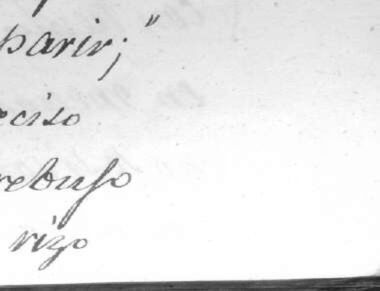 parir;"
eciso
rebuso
rizo